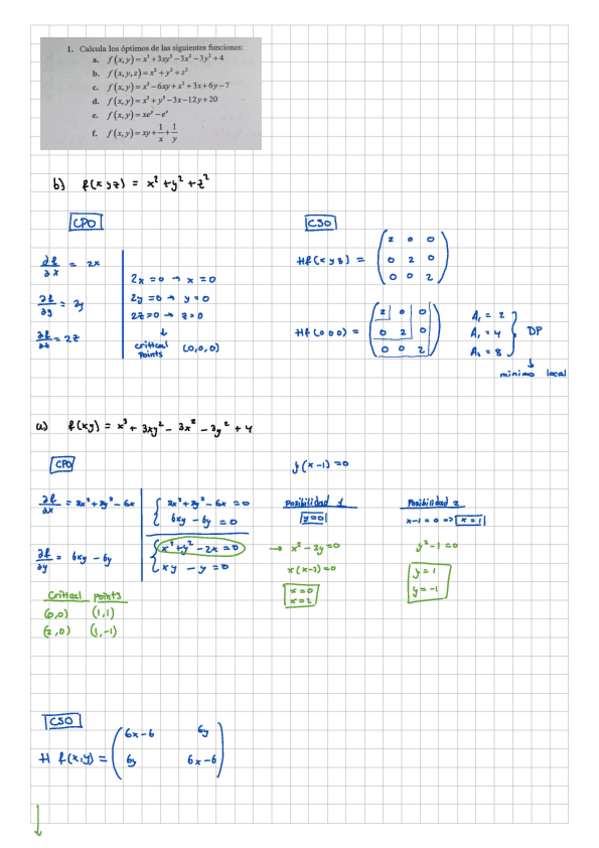 1. Calcula los óptimos de las siguientes funciones:
a. f(x,y)=x³+3xy²−3x²−3y²+4
b. f(x,y,z)=x²+y²+z²
c. f(x,y)=x³−6xy+x²+3x+6y−7
d. f(x,y)=x³+y³−3x−12y+20
e. f(x,y)=xeʸ−eˣ
f. f(x,y)=xy+1/x+1/y
b) f(x y z) = x² + y² + z²
CPO
∂f/∂x = 2x
∂f/∂y = 2y
∂f/∂z = 2z
2x = 0 → x = 0
2y = 0 → y = 0
2z = 0 → z = 0
↓
critical points (0,0,0)
CSO
Hf(x y z) = (2 0 0
0 2 0
0 0 2)
Hf(0 0 0) = (2 0 0
0 2 0
0 0 2)
A₁ = 2
A₁ = 4
A₃ = 8
} DP
↓
minimo local
a) f(xy) = x³ + 3xy² − 3x² − 3y² + 4
CPO
∂f/∂x = 3x² + 3y² − 6x
∂f/∂y = 6xy − 6y
{ 3x² + 3y² − 6x = 0
6xy − 6y = 0
{ x² + y² − 2x = 0
xy − y = 0
y(x−1) = 0
Posibilidad 1
y=0
→ x² − 2y = 0
x(x−2) = 0
x = 0
x = 2
Posibilidad 2
x−1 = 0 => x = 1
y² − 1 = 0
y = 1
y = −1
Critical points
(0,0) (1,1)
(2,0) (1,−1)
CSO
H f(x,y) = (6x−6 6y
6y 6x−6)